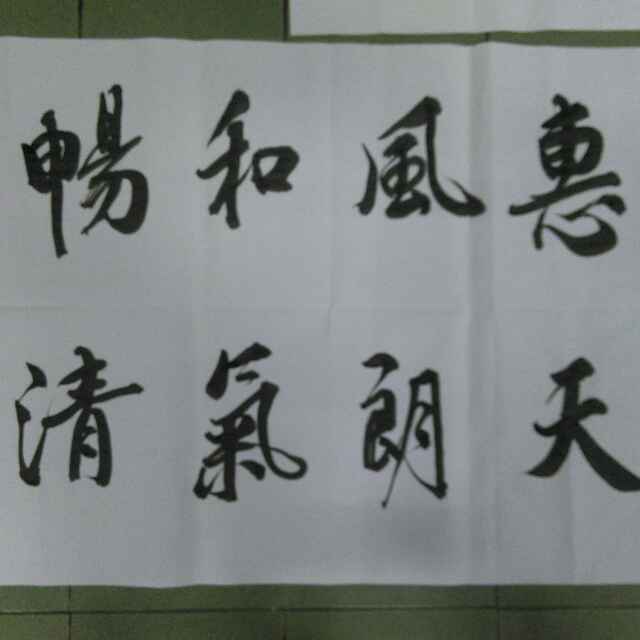 惠風和暢
天朗氣清